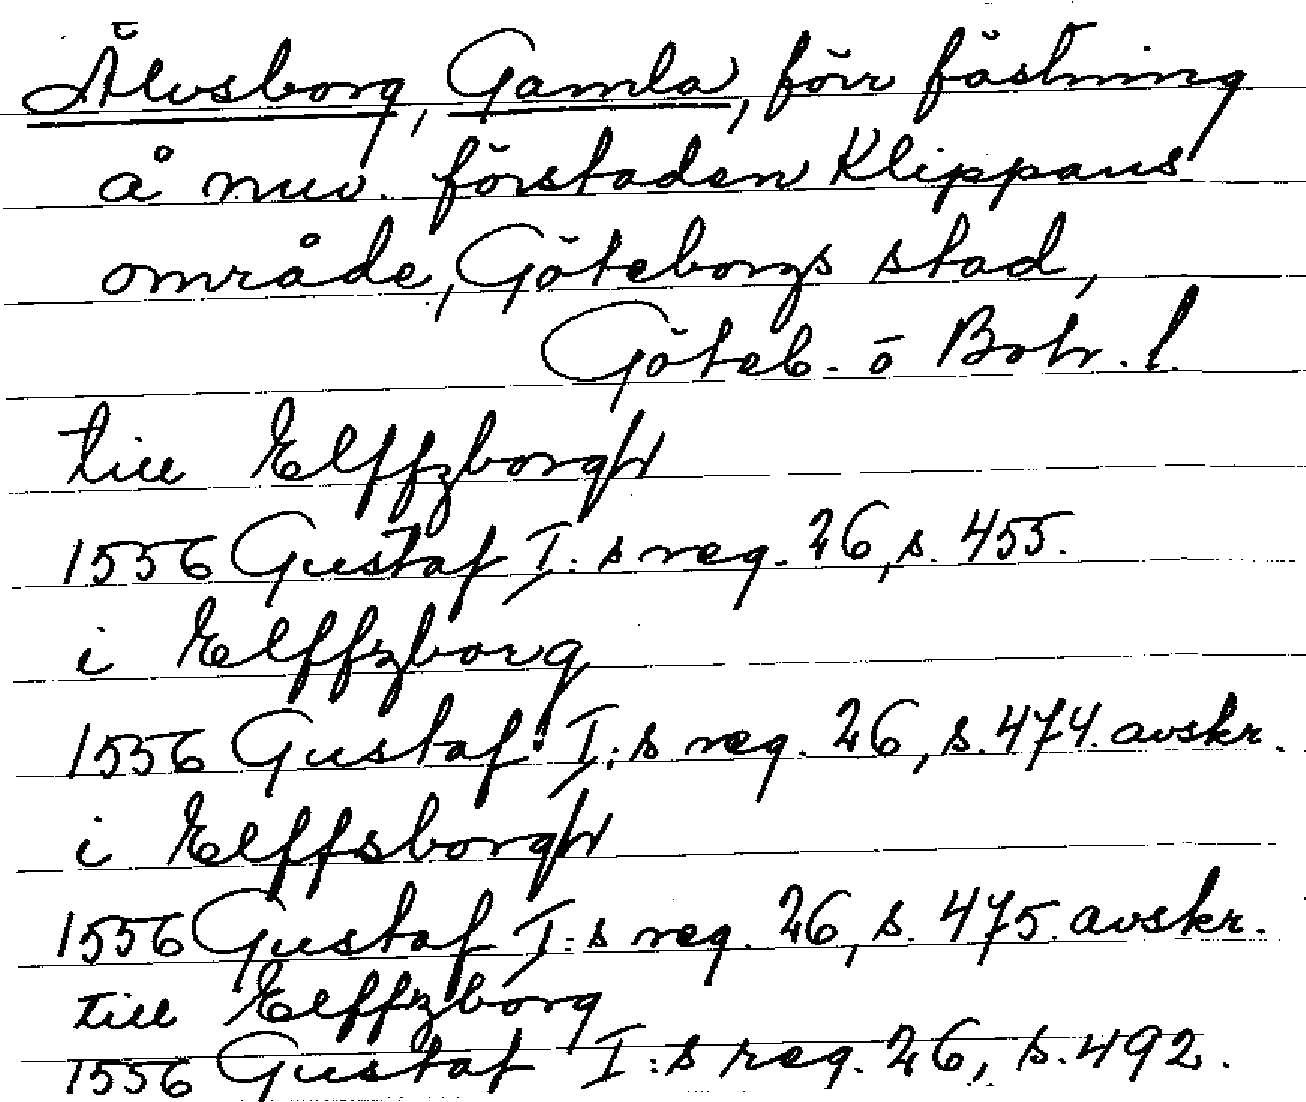 Älvsborg, Gamla, förr fästning
å nuv. förstaden Klippans
område, Göteborgs stad,
Göteb. o Boh. l.
till Elffzborgh
1556 Gustaf I:s reg. 26, s. 455.
i Elffzborg
1556 Gustaf I:s reg. 26, s. 474. avskr.
i Elffsborgh
1556 Gustaf I:s reg. 26, s. 475. avskr.
till Elffzborg
1556 Gustaf I:s reg. 26, s. 492.